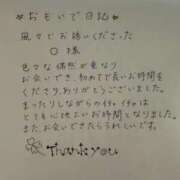 *おもいで日記*
風々でお誘いくださった
〇 様
色々な偶然が重なり
お会いでき、初めてで長いお時間を
くださり、ありがとうございました。
まったりしながらのイチャイチャは
とても心地よいお時間となりました。
また、お会いできたらうれしいです。
Thank you